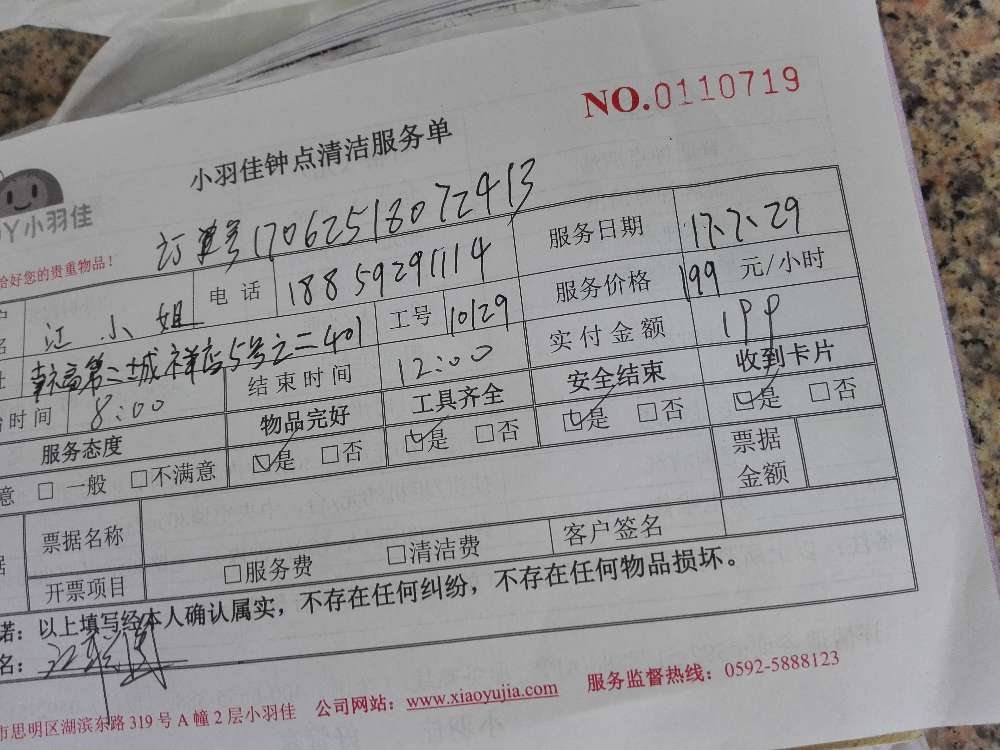 NO.0110719
小羽佳钟点清洁服务单
小羽佳
订单号17062518072413
给好您的贵重物品!
名 江小姐 电话 18859291114 服务日期 17.7.29
幸福第二城祥店5号之二401 工号 10129 服务价格 199 元/小时
时间 8:00 结束时间 12:00 实付金额 199
服务态度 物品完好 工具齐全 安全结束 收到卡片
意 □ 一般 □不满意 ☑是 □否 ☑是 □否 ☑是 □否 ☑是 □否
票据名称 票据金额
开票项目 □服务费 □清洁费 客户签名
诺:以上填写经本人确认属实,不存在任何纠纷,不存在任何物品损坏。
名:
市思明区湖滨东路319号A幢2层小羽佳 公司网站:www.xiaoyujia.com 服务监督热线:0592-5888123